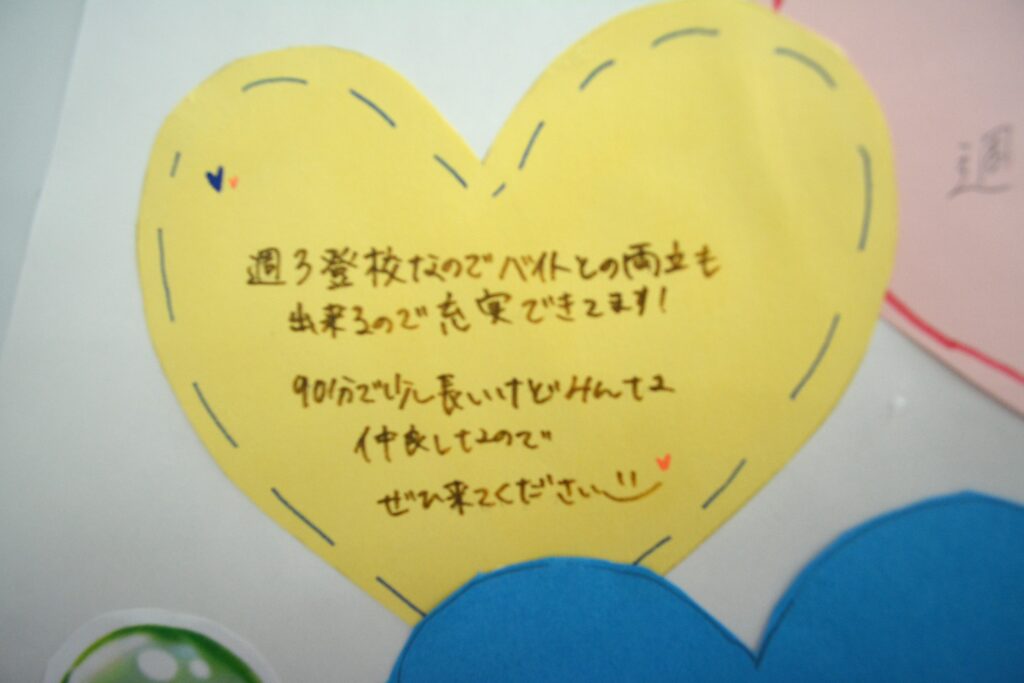 週3登校なのでバイトとの両立も
出来るので充実できてます!
90分で少し長いけどみんな
仲良しなので
ぜひ来てください
週